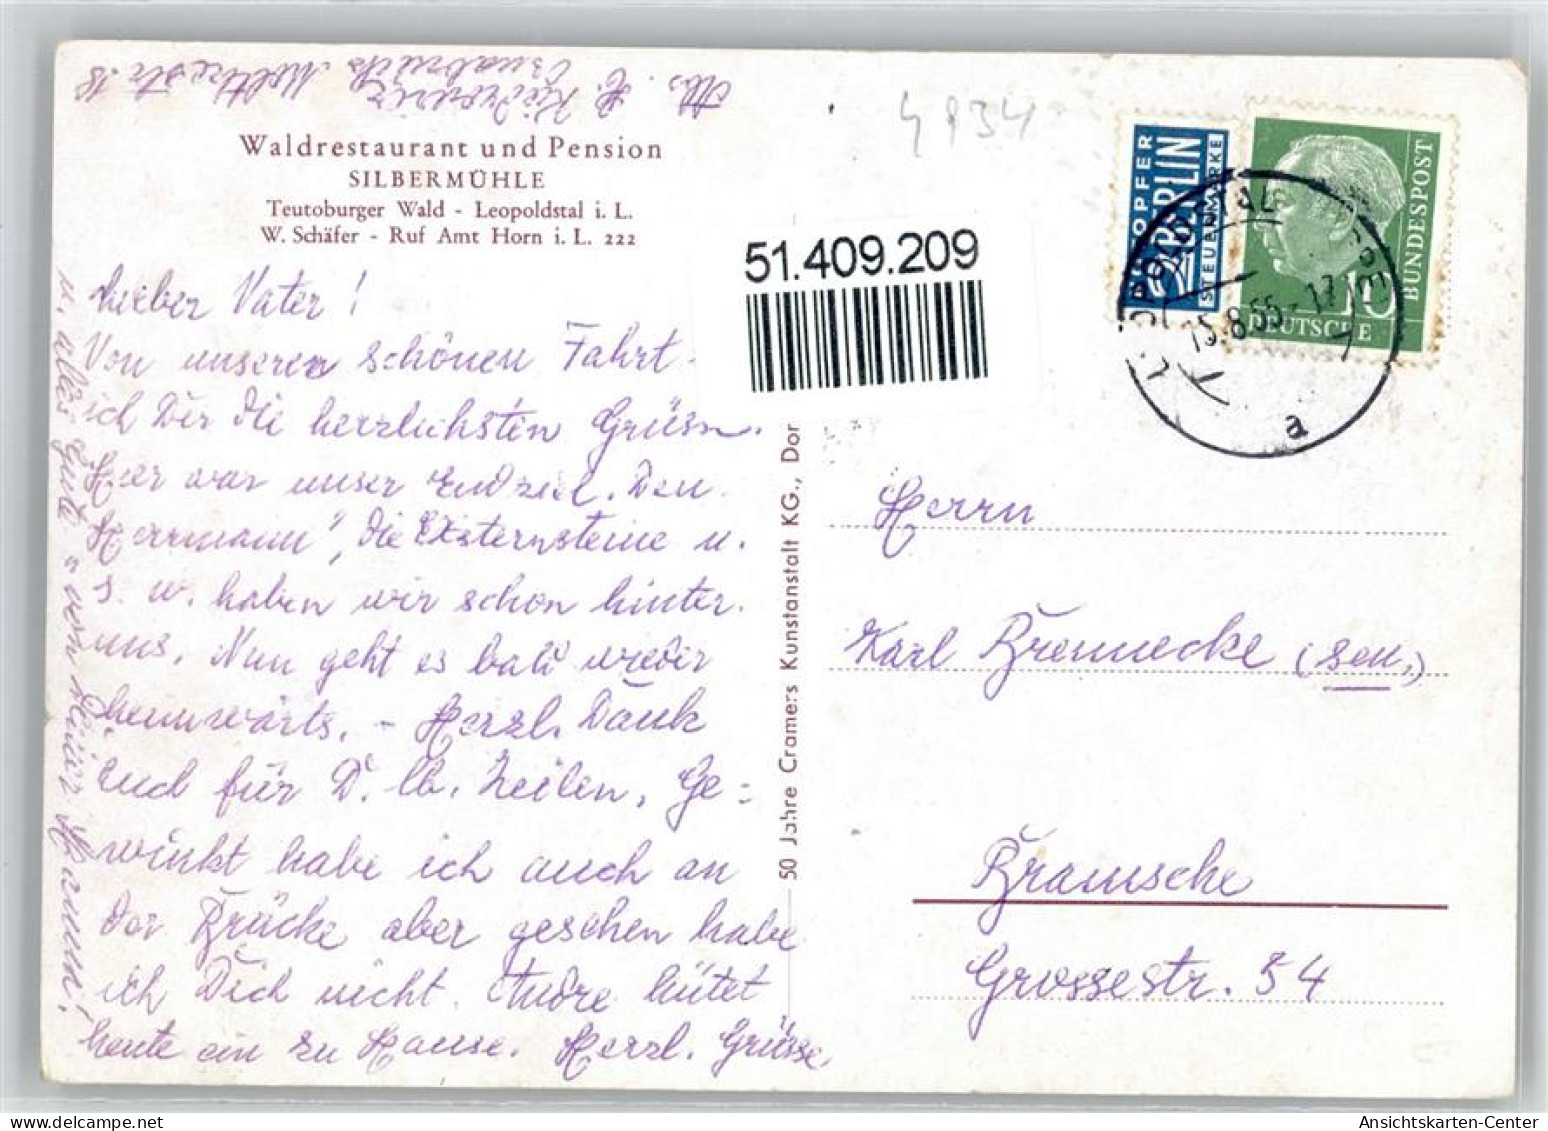 Abs. H.
Osnabrück, Moltkestr. 18
Waldrestaurant und Pension
SILBERMÜHLE
Teutoburger Wald - Leopoldstal i. L.
W. Schäfer - Ruf Amt Horn i. L. 222
Lieber Vater!
Von unseren schönen Fahrt
ich Dir die herzlichsten Grüsse.
Hier war unser Endziel. Den
Herrmann", die Externsteine u.
s. w. haben wir schon hinter
uns. Nun geht es bald wieder
heimwärts. - Herzl. Dank
auch für D. lb. Zeilen. Ge=
winkt habe ich auch an
der Brücke aber gesehen habe
ich Dich nicht. Andre hütet
heute ein zu Hause. Herzl. Grüsse,
u. alles Gute von Deiner Hanni!
4934
51.409.209
50 Jahre Cramers Kunstanstalt KG., Dor
NOTOPFER
BERLIN
STEUERMARKE
DEUTSCHE
BUNDESPOST
10
LEOPOLDSTAL
15.8.55-17
a
Herrn
Karl Brennecke (sen.)
Bramsche
Grossestr. 54
Ansichtskarten-Center